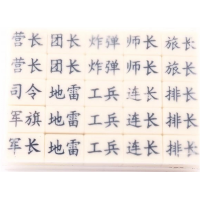 营长 团长 炸弹 师长 旅长
营长 团长 炸弹 师长 旅长
司令 地雷 工兵 连长 排长
军旗 地雷 工兵 连长 排长
军长 地雷 工兵 连长 排长